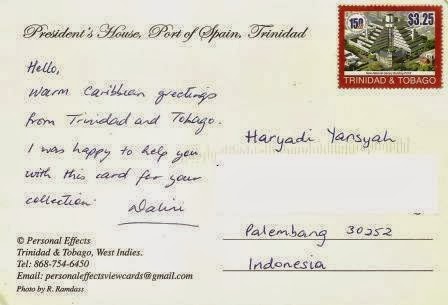 President's House, Port of Spain, Trinidad
150
$3.25
TRINIDAD & TOBAGO
Hello,
Warm Caribbean greetings
from Trinidad and Tobago.
I was happy to help you
with this card for your
collection.
Haryadi Yansyah
Palembang 30252
Indonesia
© Personal Effects
Trinidad & Tobago, West Indies.
Tel: 868-754-6450
Email: personaleffectsviewcards@gmail.com
Photo by R. Ramdass